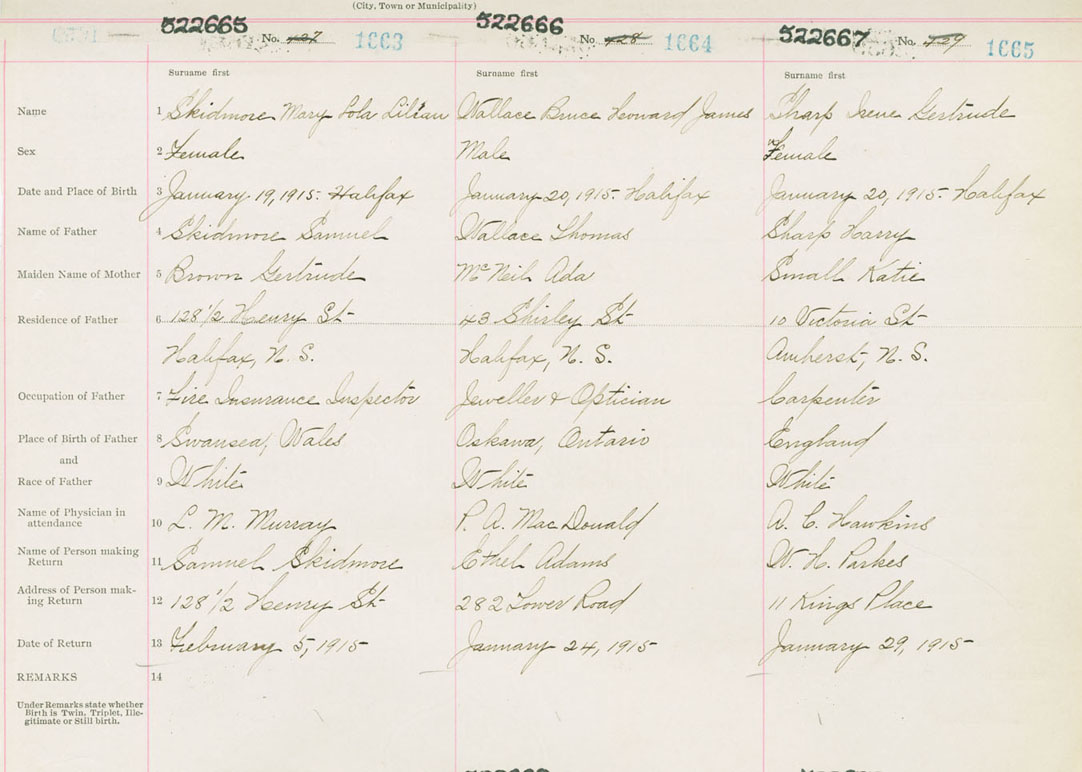 (City, Town or Municipality)
522665 No. 427 1663 522666 No. 428 1664 522667 No. 429 1665
Surname first Surname first Surname first
Name 1 Skidmore Mary Lola Lilian Wallace Bruce Howard James Sharp Irene Gertrude
Sex 2 Female Male Female
Date and Place of Birth 3 January 19, 1915. Halifax January 20, 1915. Halifax January 20, 1915. Halifax
Name of Father 4 Skidmore Samuel Wallace Thomas Sharp Harry
Maiden Name of Mother 5 Brown Gertrude McNeil Ada Small Katie
Residence of Father 6 128 1/2 Henry St 43 Shirley St 10 Victoria St
Halifax, N. S. Halifax, N. S. Amherst, N. S.
Occupation of Father 7 Fire Insurance Inspector Jeweller & Optician Carpenter
Place of Birth of Father 8 Swansea, Wales Oskawa, Ontario England
and
Race of Father 9 White White White
Name of Physician in
attendance 10 L. M. Murray P. A. MacDonald A. C. Hawkins
Name of Person making
Return 11 Samuel Skidmore Ethel Adams W. H. Parkes
Address of Person mak-
ing Return 12 128 1/2 Henry St 282 Lower Road 11 Kings Place
Date of Return 13 February 5, 1915 January 24, 1915 January 29, 1915
REMARKS 14
Under Remarks state whether
Birth is Twin, Triplet, Ille-
gitimate or Still birth.